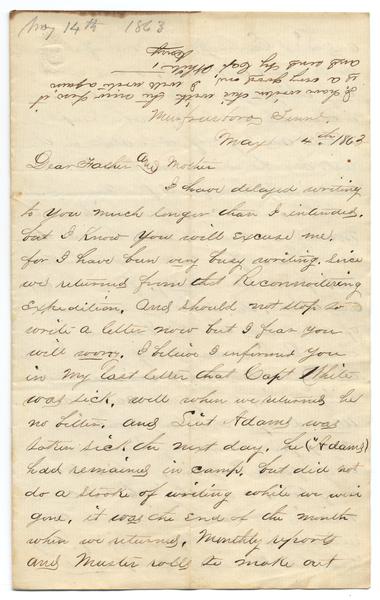 May 14th 1863
I have written this with
is a very good one, I will write again
and send by Capt White
Murfreesboro Tenne.
May 14th 1863
Dear Father and Mother
I have delayed writing
to you much longer than I intended.
but I know you will excuse me.
for I have bun very busy writing. Since
we returned from that Reconnoitering
expedition. And should not stop to
write a letter now but I fear you
will worry. I believe I informed you
in my last letter that Capt White
was sick. well when we returned he
no better. and Lieut Adams was
taken sick the next day. he ("Adams)
had remained in camp. but did not
do a stroke of writing while we were
gone. it was the end of the month
when we returned. Monthly reports
and Muster rolls to make out